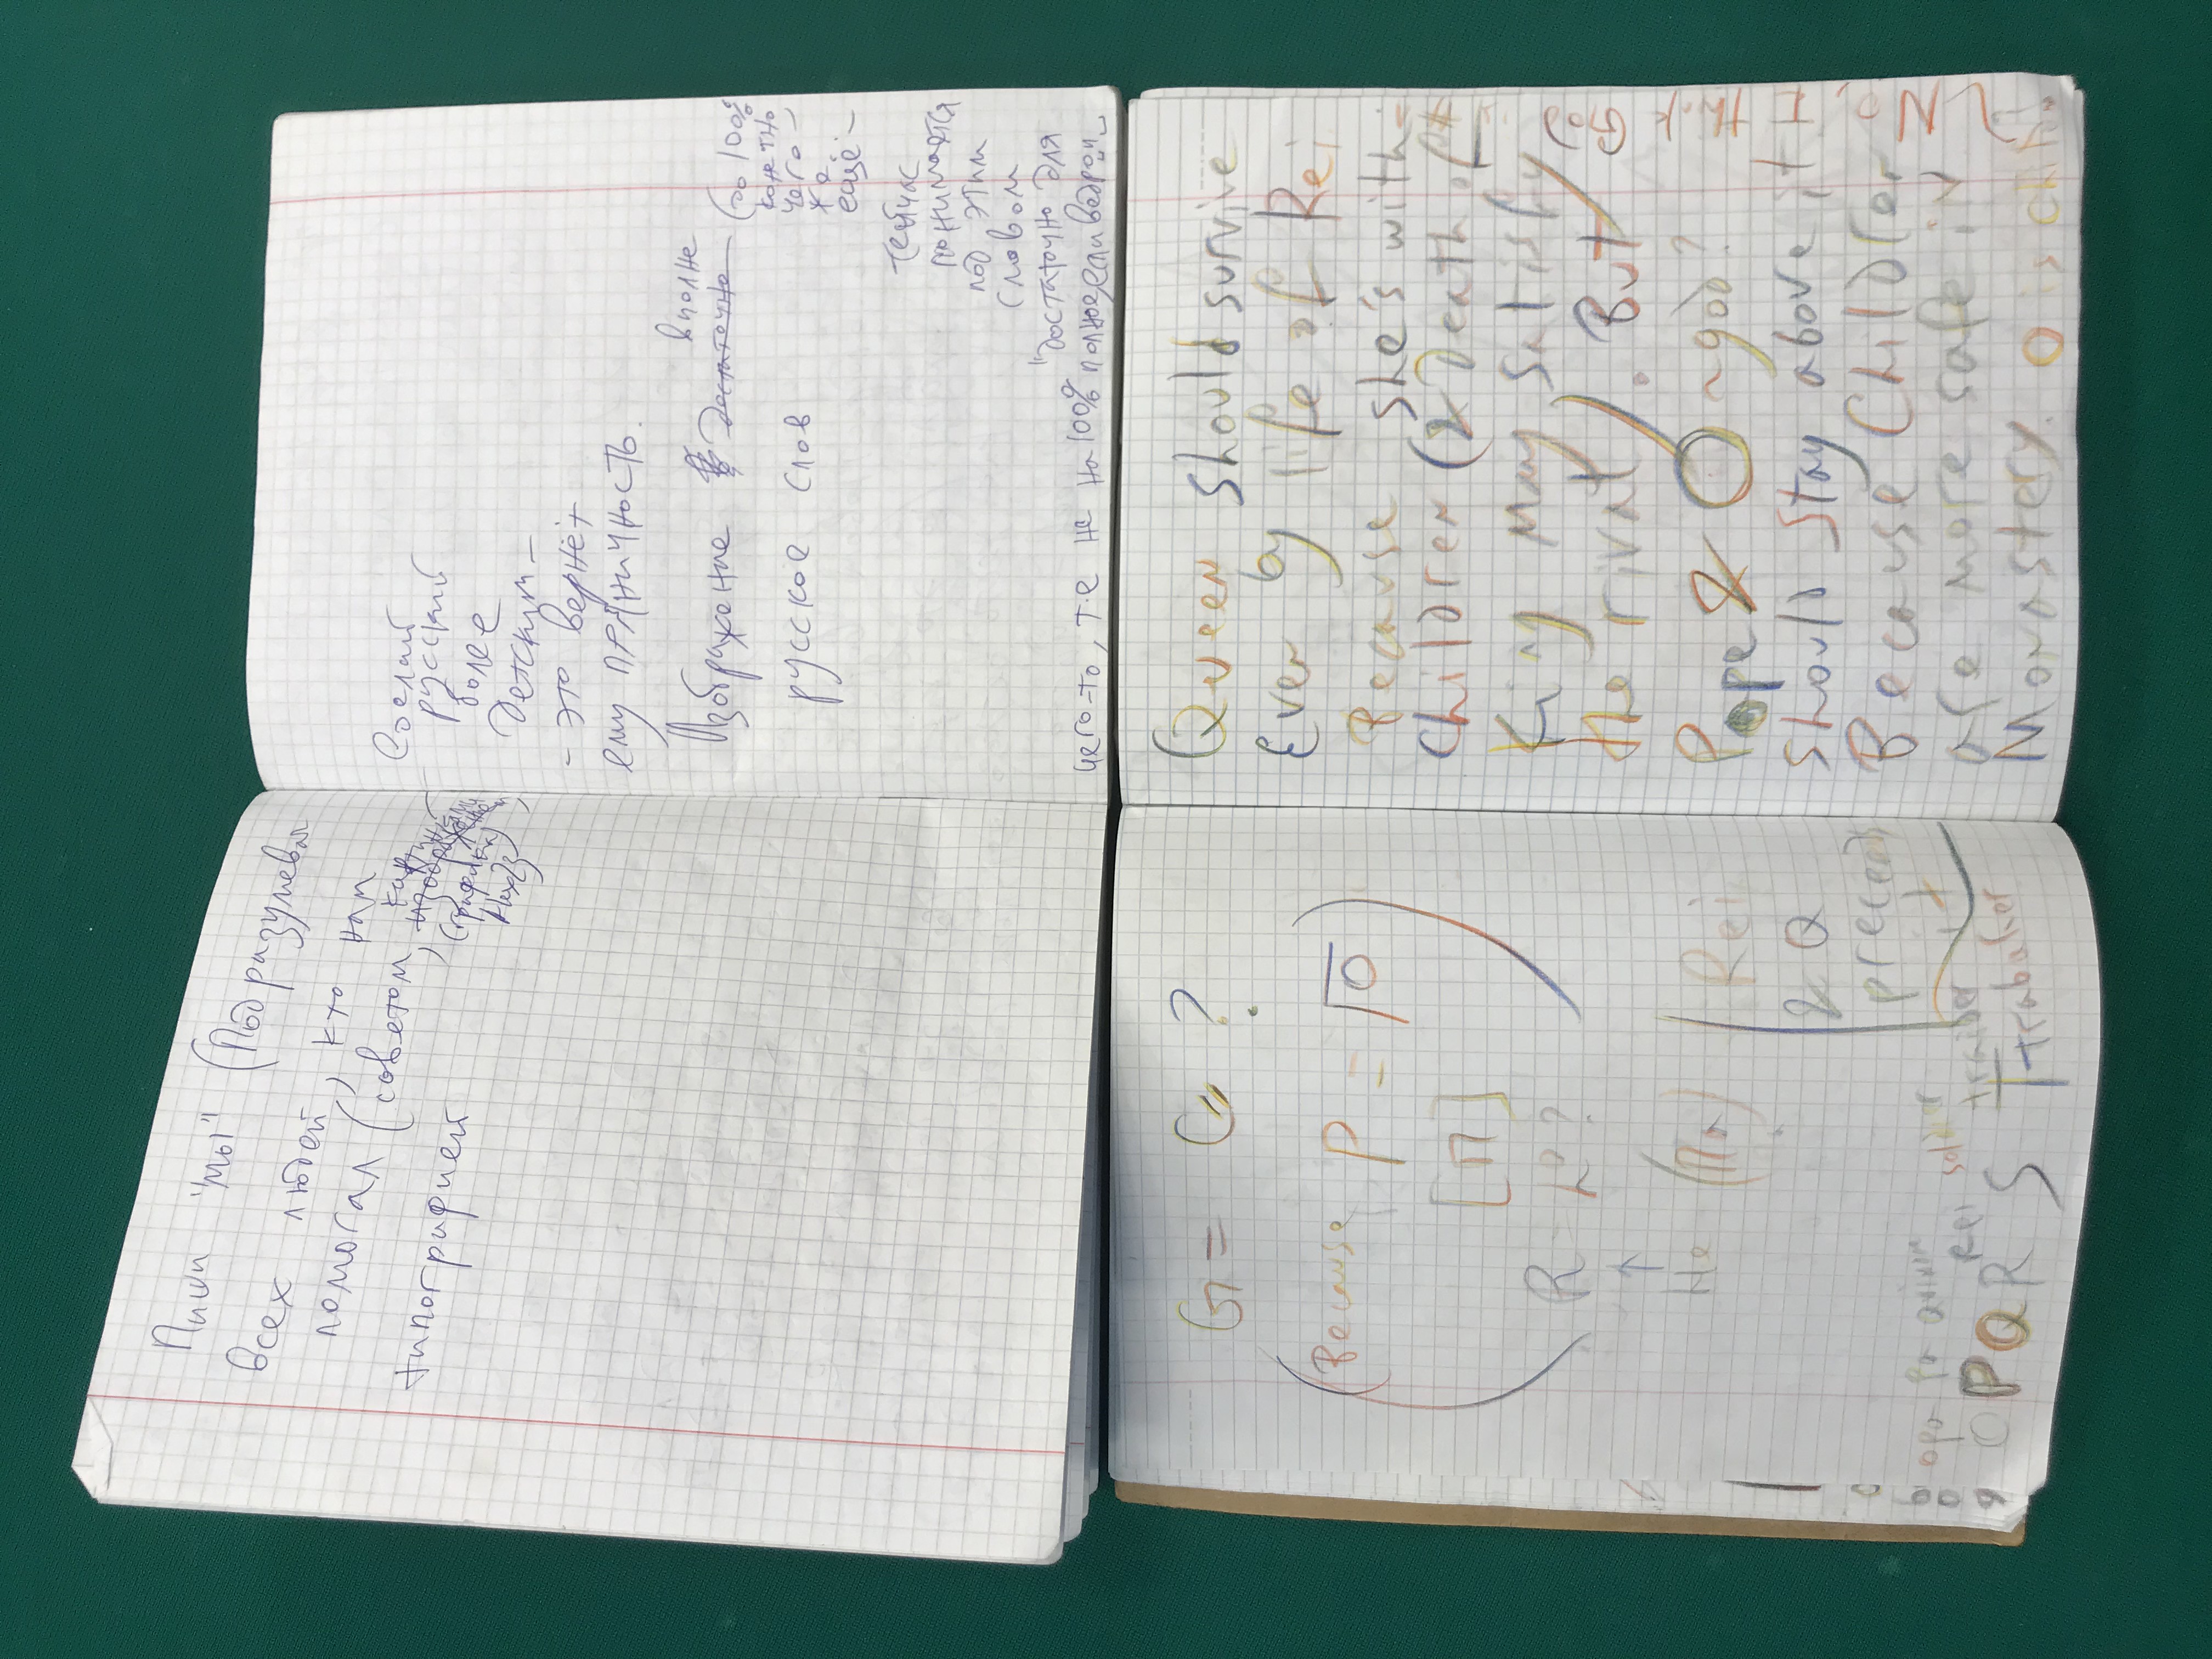 Пиши "мы" (Подразумевая
всех людей, кто нам
помогал (советом, картинками
изображением,
(графика)
типографией
Сделай
русский
более
детским —
- это вернёт
ему пряничность.
вполне
Изображение достаточно
русское слов
(до 100%
чего-
же
ещё —
сейчас
понимается
под этим
словом
"достаточно для
чего-то, т.е не на 100% полное, если ведром"
G = C ?
(Because P = √0
[П]
R = L° ?
Не (Па)
Rei
& Q
precends
it
opa pa
Rei soldier
traider
O P Q R S T trabaker
Queen should survive
Even by life of Rei
Because she's with
Children (& Death of
King may satisfy
the rival). But
Pope & O ~ god?
should stay above it
Because Children
are more safe in
Monastery. O is child
No, I think God